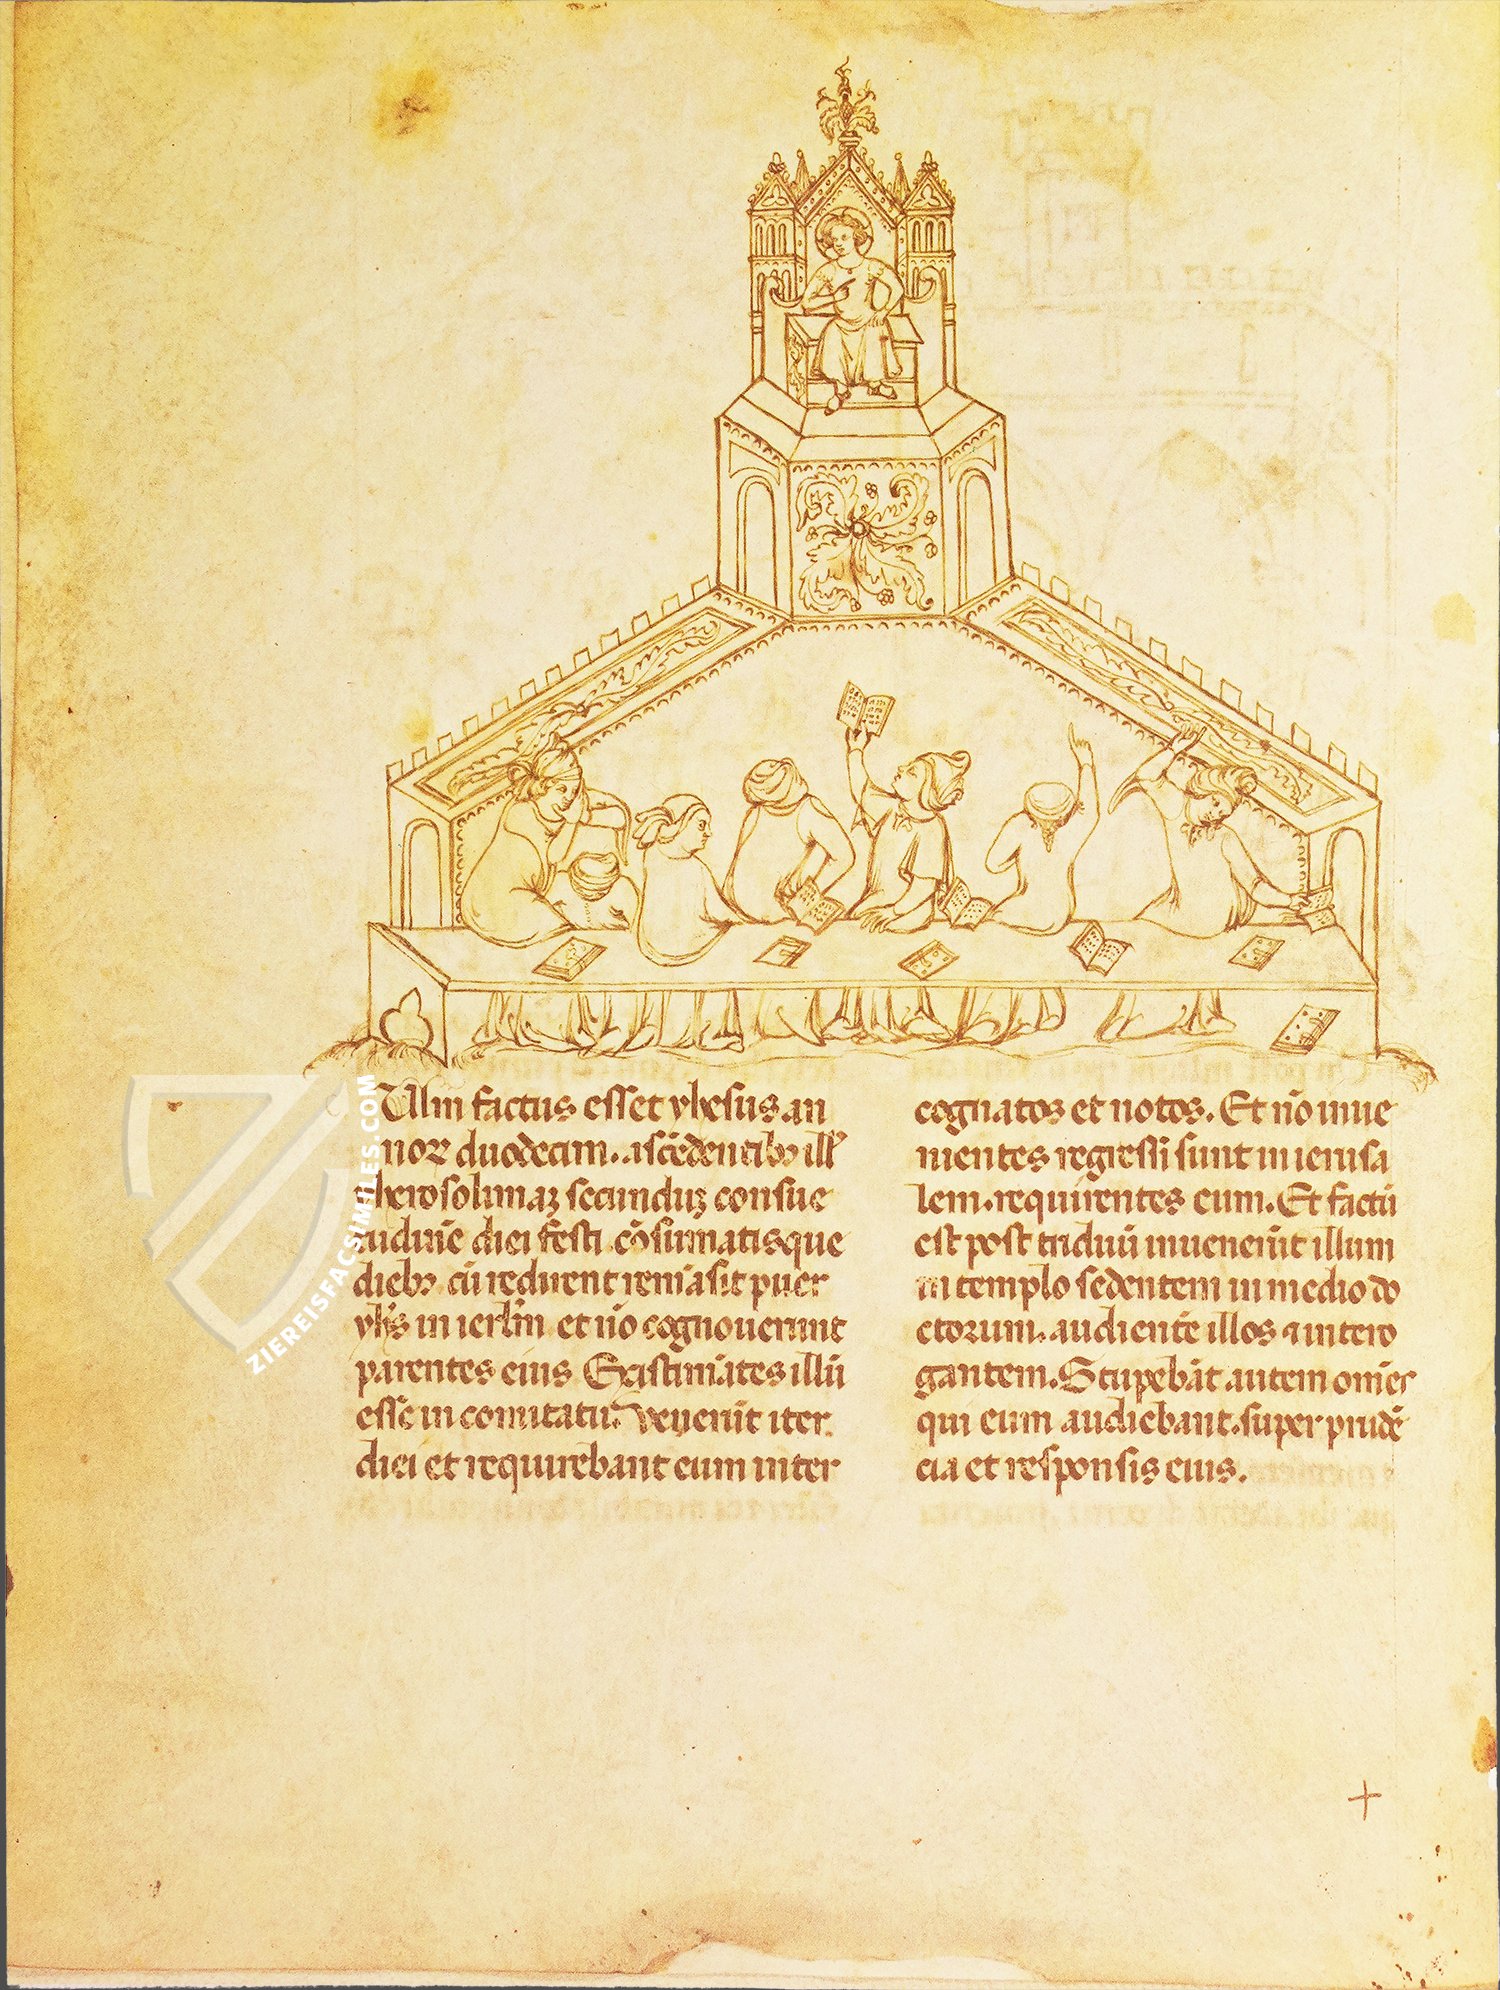 Um factus esset yhesus an
noꝝ duodecim. ascēdentibꝫ ill'
iherosolimaꝫ secunduꝫ consue
tudinē diei festi cōsumatisque
diebꝫ cū redirent remāsit puer
yhs̄ in ierlm̄ et nō cognouerunt
parentes eius Existimātes illū
esse in comitatu. Venerūt iter
diei et requirebant eum inter
cognatos et notos. Et nō inue
nientes regressi sunt in ierusa
lem. requirentes eum. Et factū
est post triduū inuenerūt illum
in templo sedentem in medio do
ctorum. audientē illos & intero
gantem. Stupebāt autem omēs
qui eum audiebant. super prudē
cia et responsis eius.
ZIEREISFACSIMILES.COM